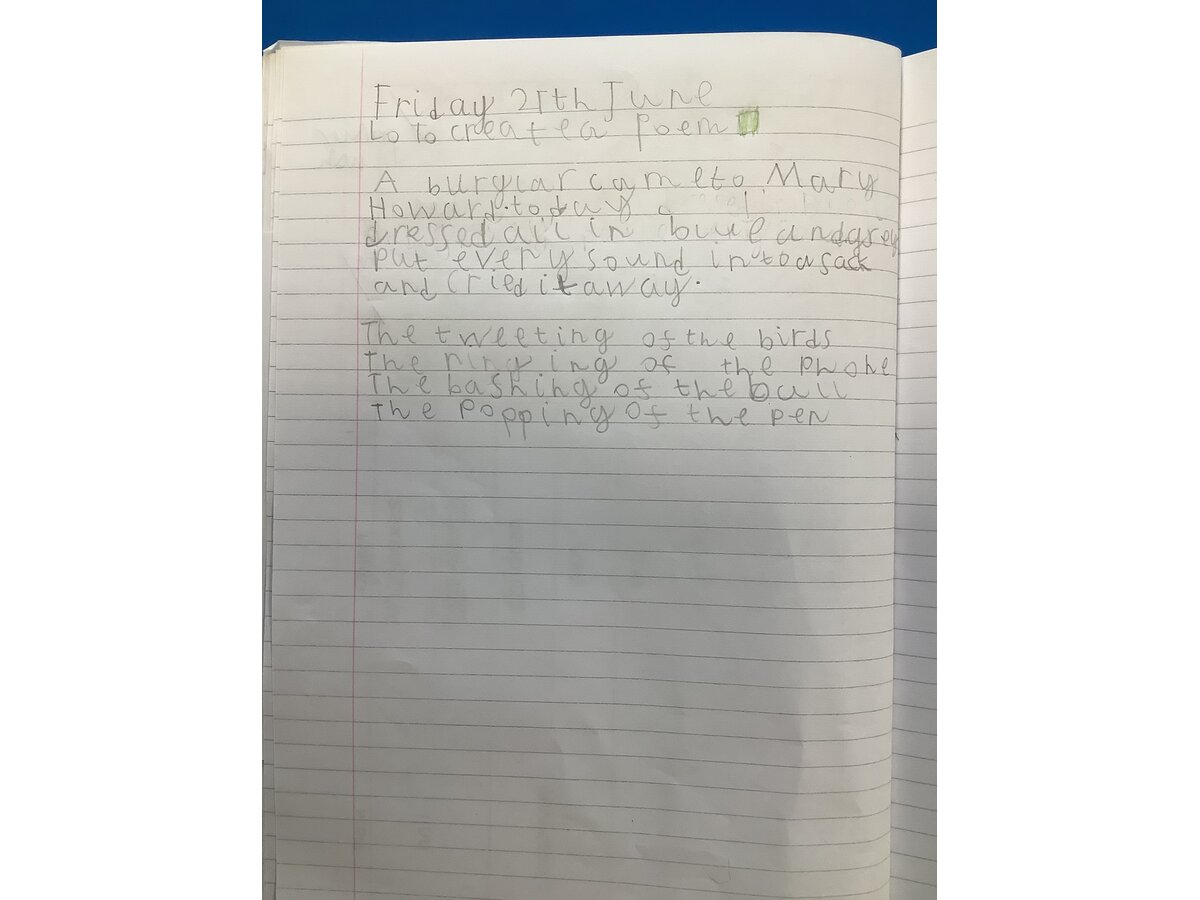 Friday 21th June
Lo to create a poem
A burglar came to Mary
Howard. today
dressed all in blue and grey
put every sound into a sack
and cried it away.
The tweeting of the birds
The ringing of the phone
The bashing of the ball
The popping of the pen